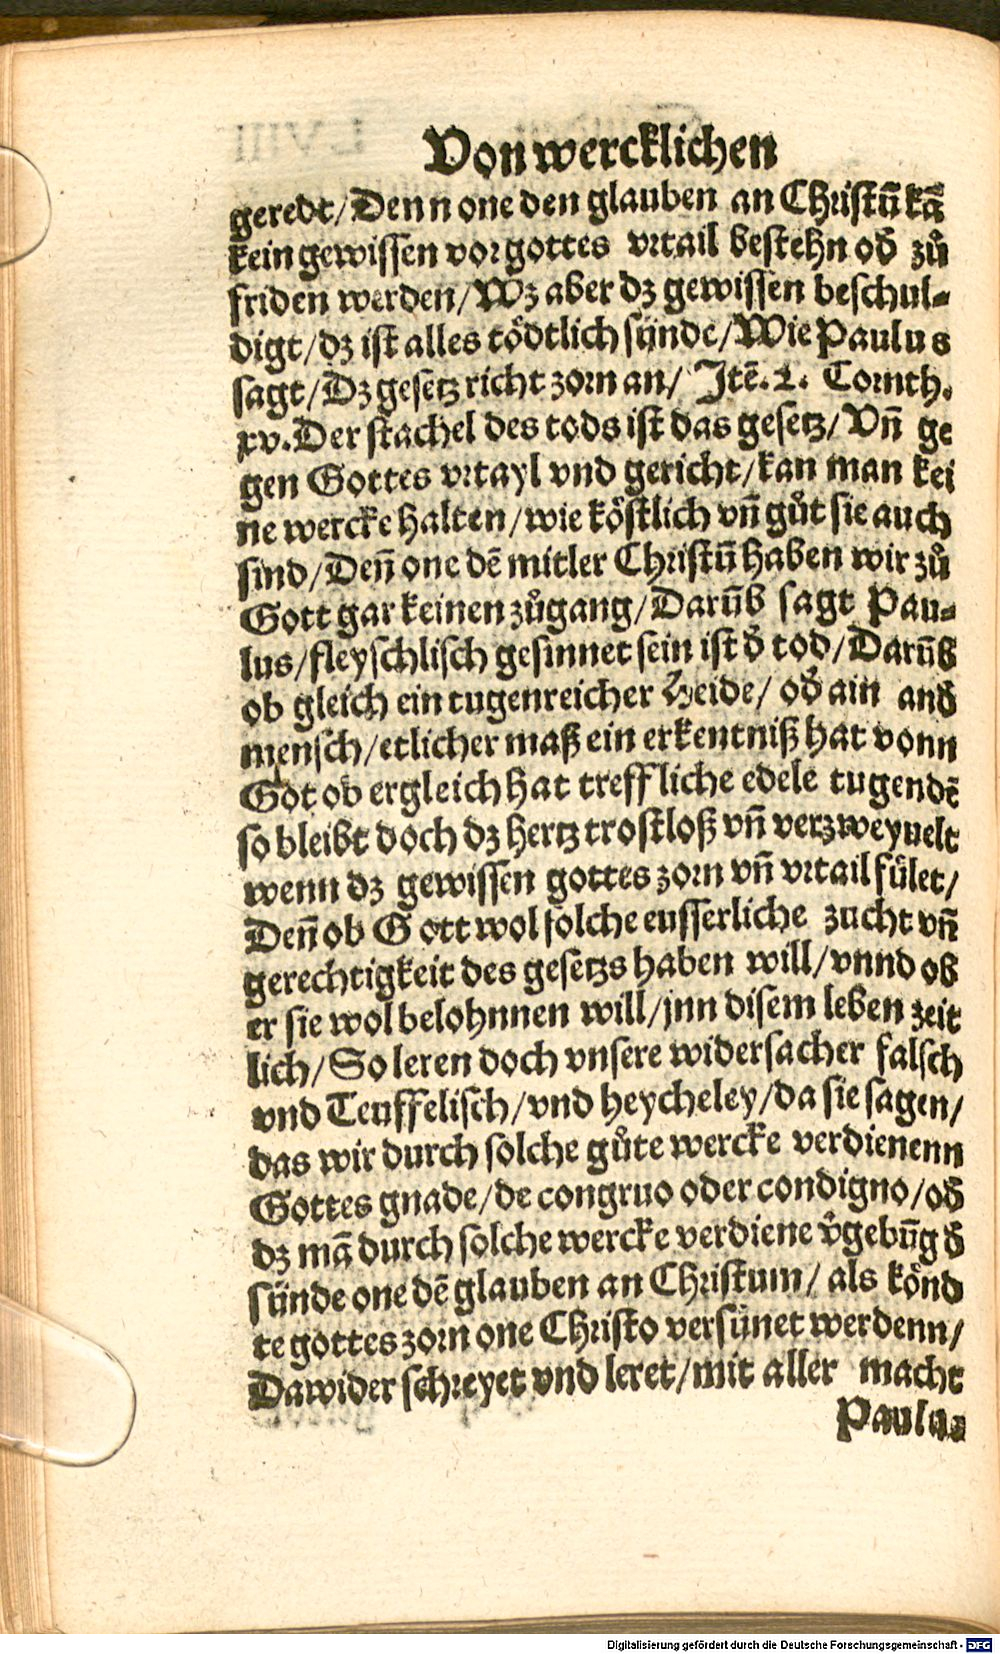 Von wercklichen
geredt/Denn one den glauben an Christū kā
kein gewissen vor gottes vrtail bestehn od̕ zů
friden werden/Wz aber dz gewissen beschul⸗
digt/dz ist alles tödtlich sünde/Wie Paulus
sagt/Dz gesetz richt zorn an/ Jtē. 1. Corinth.
xv. Der stachel des tods ist das gesetz/Vn̄ ge
gen Gottes vrtayl vnd gericht/kan man kei
ne wercke halten/wie köstlich vn̄ gůt sie auch
sind/Den̄ one dē mitler Christū haben wir zů
Gott gar keinen zůgang/Darūb sagt Pau⸗
lus/fleyschlisch gesinnet sein ist d̕ tod/Darūb
ob gleich ein tugenreicher Heide/ od̕ ain and̕
mensch/etlicher maß ein erkentniß hat vonn
Got ob er gleich hat treffliche edele tugendē
so bleibt doch dz hertz trostloß vn̄ verzweyuelt
wenn dz gewissen gottes zorn vn̄ vrtail fület/
Den̄ ob Gott wol solche eusserliche zucht vn̄
gerechtigkeit des gesetzs haben will/vnnd ob
er sie wol belohnnen will/jnn disem leben zeit
lich/So leren doch vnsere widersacher falsch
vnd Teuffelisch/vnd heycheley/da sie sagen/
das wir durch solche gůte wercke verdienenn
Gottes gnade/de congruo oder condigno/od̕
dz mā durch solche wercke verdiene v̕gebūg d̕
sünde one dē glauben an Christum/ als könd
te gottes zorn one Christo versünet werdenn/
Dawider schreyet vnd leret/mit aller macht
Paulus
Digitalisierung gefördert durch die Deutsche Forschungsgemeinschaft - DFG